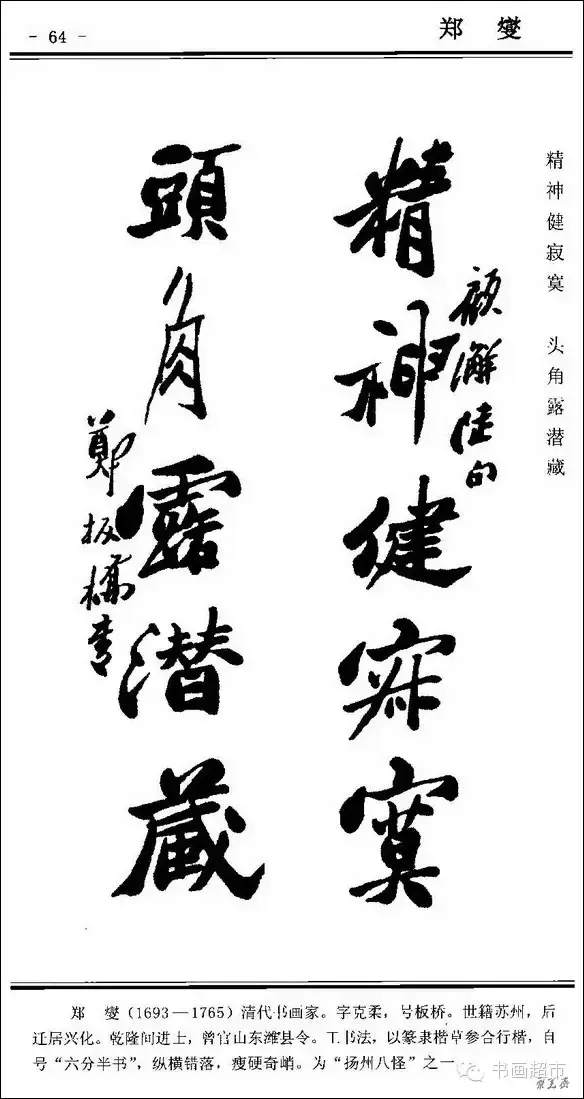 - 64 -
郑 燮
精神健寂寞 头角露潜藏
精神健寂寞
顾澥陆句
頭角露潜藏
鄭板橋書
郑 燮(1693—1765)清代书画家。字克柔，号板桥。世籍苏州，后
迁居兴化。乾隆间进士，曾官山东潍县令。工书法，以篆隶楷草参合行楷，自
号“六分半书”，纵横错落，瘦硬奇峭。为“扬州八怪”之一
书画超市